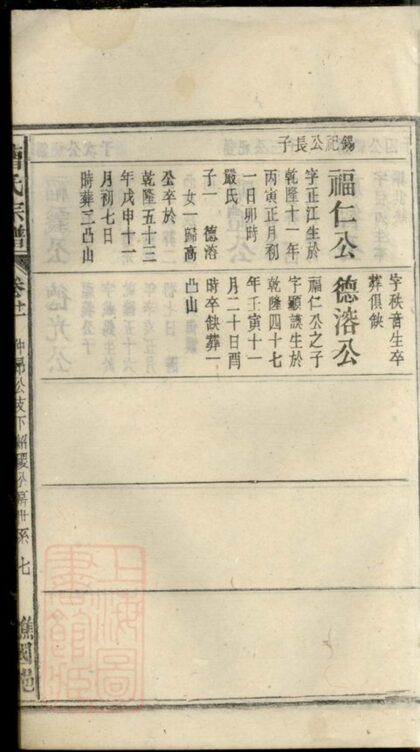 錫祀公長子
福仁公
字正江生於
乾隆十一年
丙寅正月初
一日卯時
嚴氏
子一 德溶
女一歸高
公卒於
乾隆五十三
年戊申十一
月初七日
時葬工凸山
字秩音生卒
葬俱缺
德溶公
福仁公之子
字顯謨生於
乾隆四十七
年壬寅十一
月二十日酉
時卒缺葬一
凸山
曹氏宗譜
卷十一
仲昂公支下紹
公
系
七
譙國邑
上海圖
書館藏